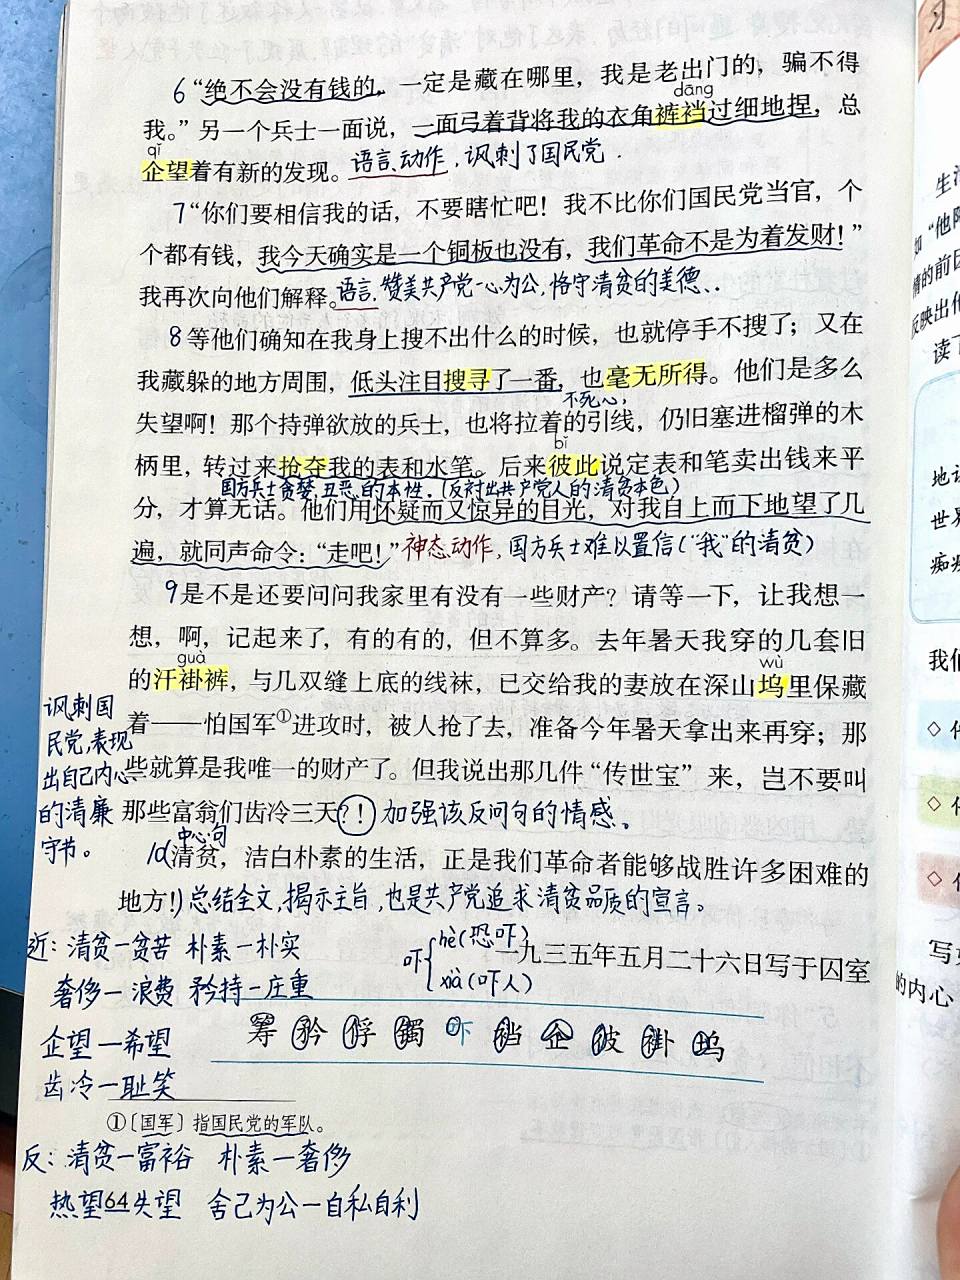 6“绝不会没有钱的，一定是藏在哪里，我是老出门的，骗不得
dāng
我。”另一个兵士一面说，一面弓着背将我的衣角裤裆过细地捏，总
qǐ
企望着有新的发现。语言、动作，讽刺了国民党.
7“你们要相信我的话，不要瞎忙吧！我不比你们国民党当官，个
个都有钱，我今天确实是一个铜板也没有，我们革命不是为着发财！”
我再次向他们解释。语言，赞美共产党一心为公，恪守清贫的美德..
8等他们确知在我身上搜不出什么的时候，也就停手不搜了；又在
我藏躲的地方周围，低头注目搜寻了一番，也毫无所得。他们是多么
不死心，
失望啊！那个持弹欲放的兵士，也将拉着的引线，仍旧塞进榴弹的木
bǐ
柄里，转过来抢夺我的表和水笔。后来彼此说定表和笔卖出钱来平
国方兵士贪婪、丑恶的本性.（反衬出共产党人的清贫本色）
分，才算无话。他们用怀疑而又惊异的目光，对我自上而下地望了几
遍，就同声命令：“走吧！”神态动作，国方兵士难以置信（“我”的清贫）
9是不是还要问问我家里有没有一些财产？请等一下，让我想一
想，啊，记起来了，有的有的，但不算多。去年暑天我穿的几套旧
guà wù
的汗褂裤，与几双缝上底的线袜，已交给我的妻放在深山坞里保藏
着——怕国军①进攻时，被人抢了去，准备今年暑天拿出来再穿；那
些就算是我唯一的财产了。但我说出那几件“传世宝”来，岂不要叫
那些富翁们齿冷三天？！加强该反问句的情感。
讽刺国
民党，表现
出自己内心
的清廉
守节。
中心句
10（清贫，洁白朴素的生活，正是我们革命者能够战胜许多困难的
地方！）总结全文，揭示主旨，也是共产党追求清贫品质的宣言。
一九三五年五月二十六日写于囚室
吓{hè（恐吓）
xià（吓人）
近：清贫—贫苦 朴素—朴实
奢侈—浪费 矜持—庄重
企望—希望
齿冷—耻笑
筹 矜 俘 镯 吓 裆 企 彼 褂 坞
①〔国军〕指国民党的军队。
反：清贫—富裕 朴素—奢侈
热望 失望 舍己为公—自私自利
64
生活
如“他
情的前
反映出
读了
地
世界
痴
我们
◇
◇
◇
写
的内心